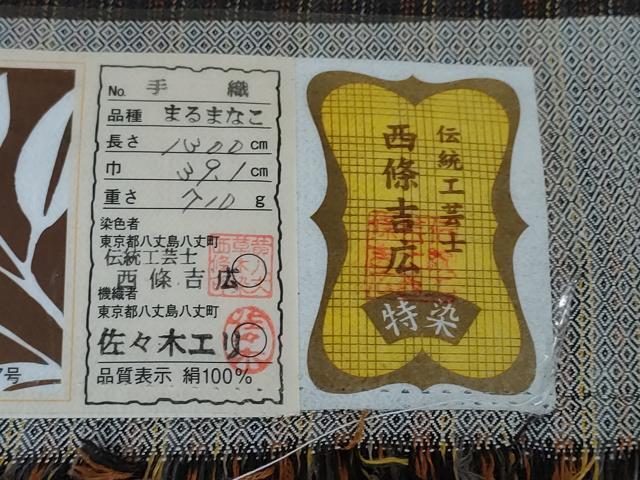 No. 手織
品種 まるまなこ
長さ 1300 cm
巾 39.1 cm
重さ 710 g
染色者
東京都八丈島八丈町
伝統工芸士
西條吉広
機織者
東京都八丈島八丈町
佐々木エリ
品質表示 絹100%
号
伝統工芸士
西條吉広
特染